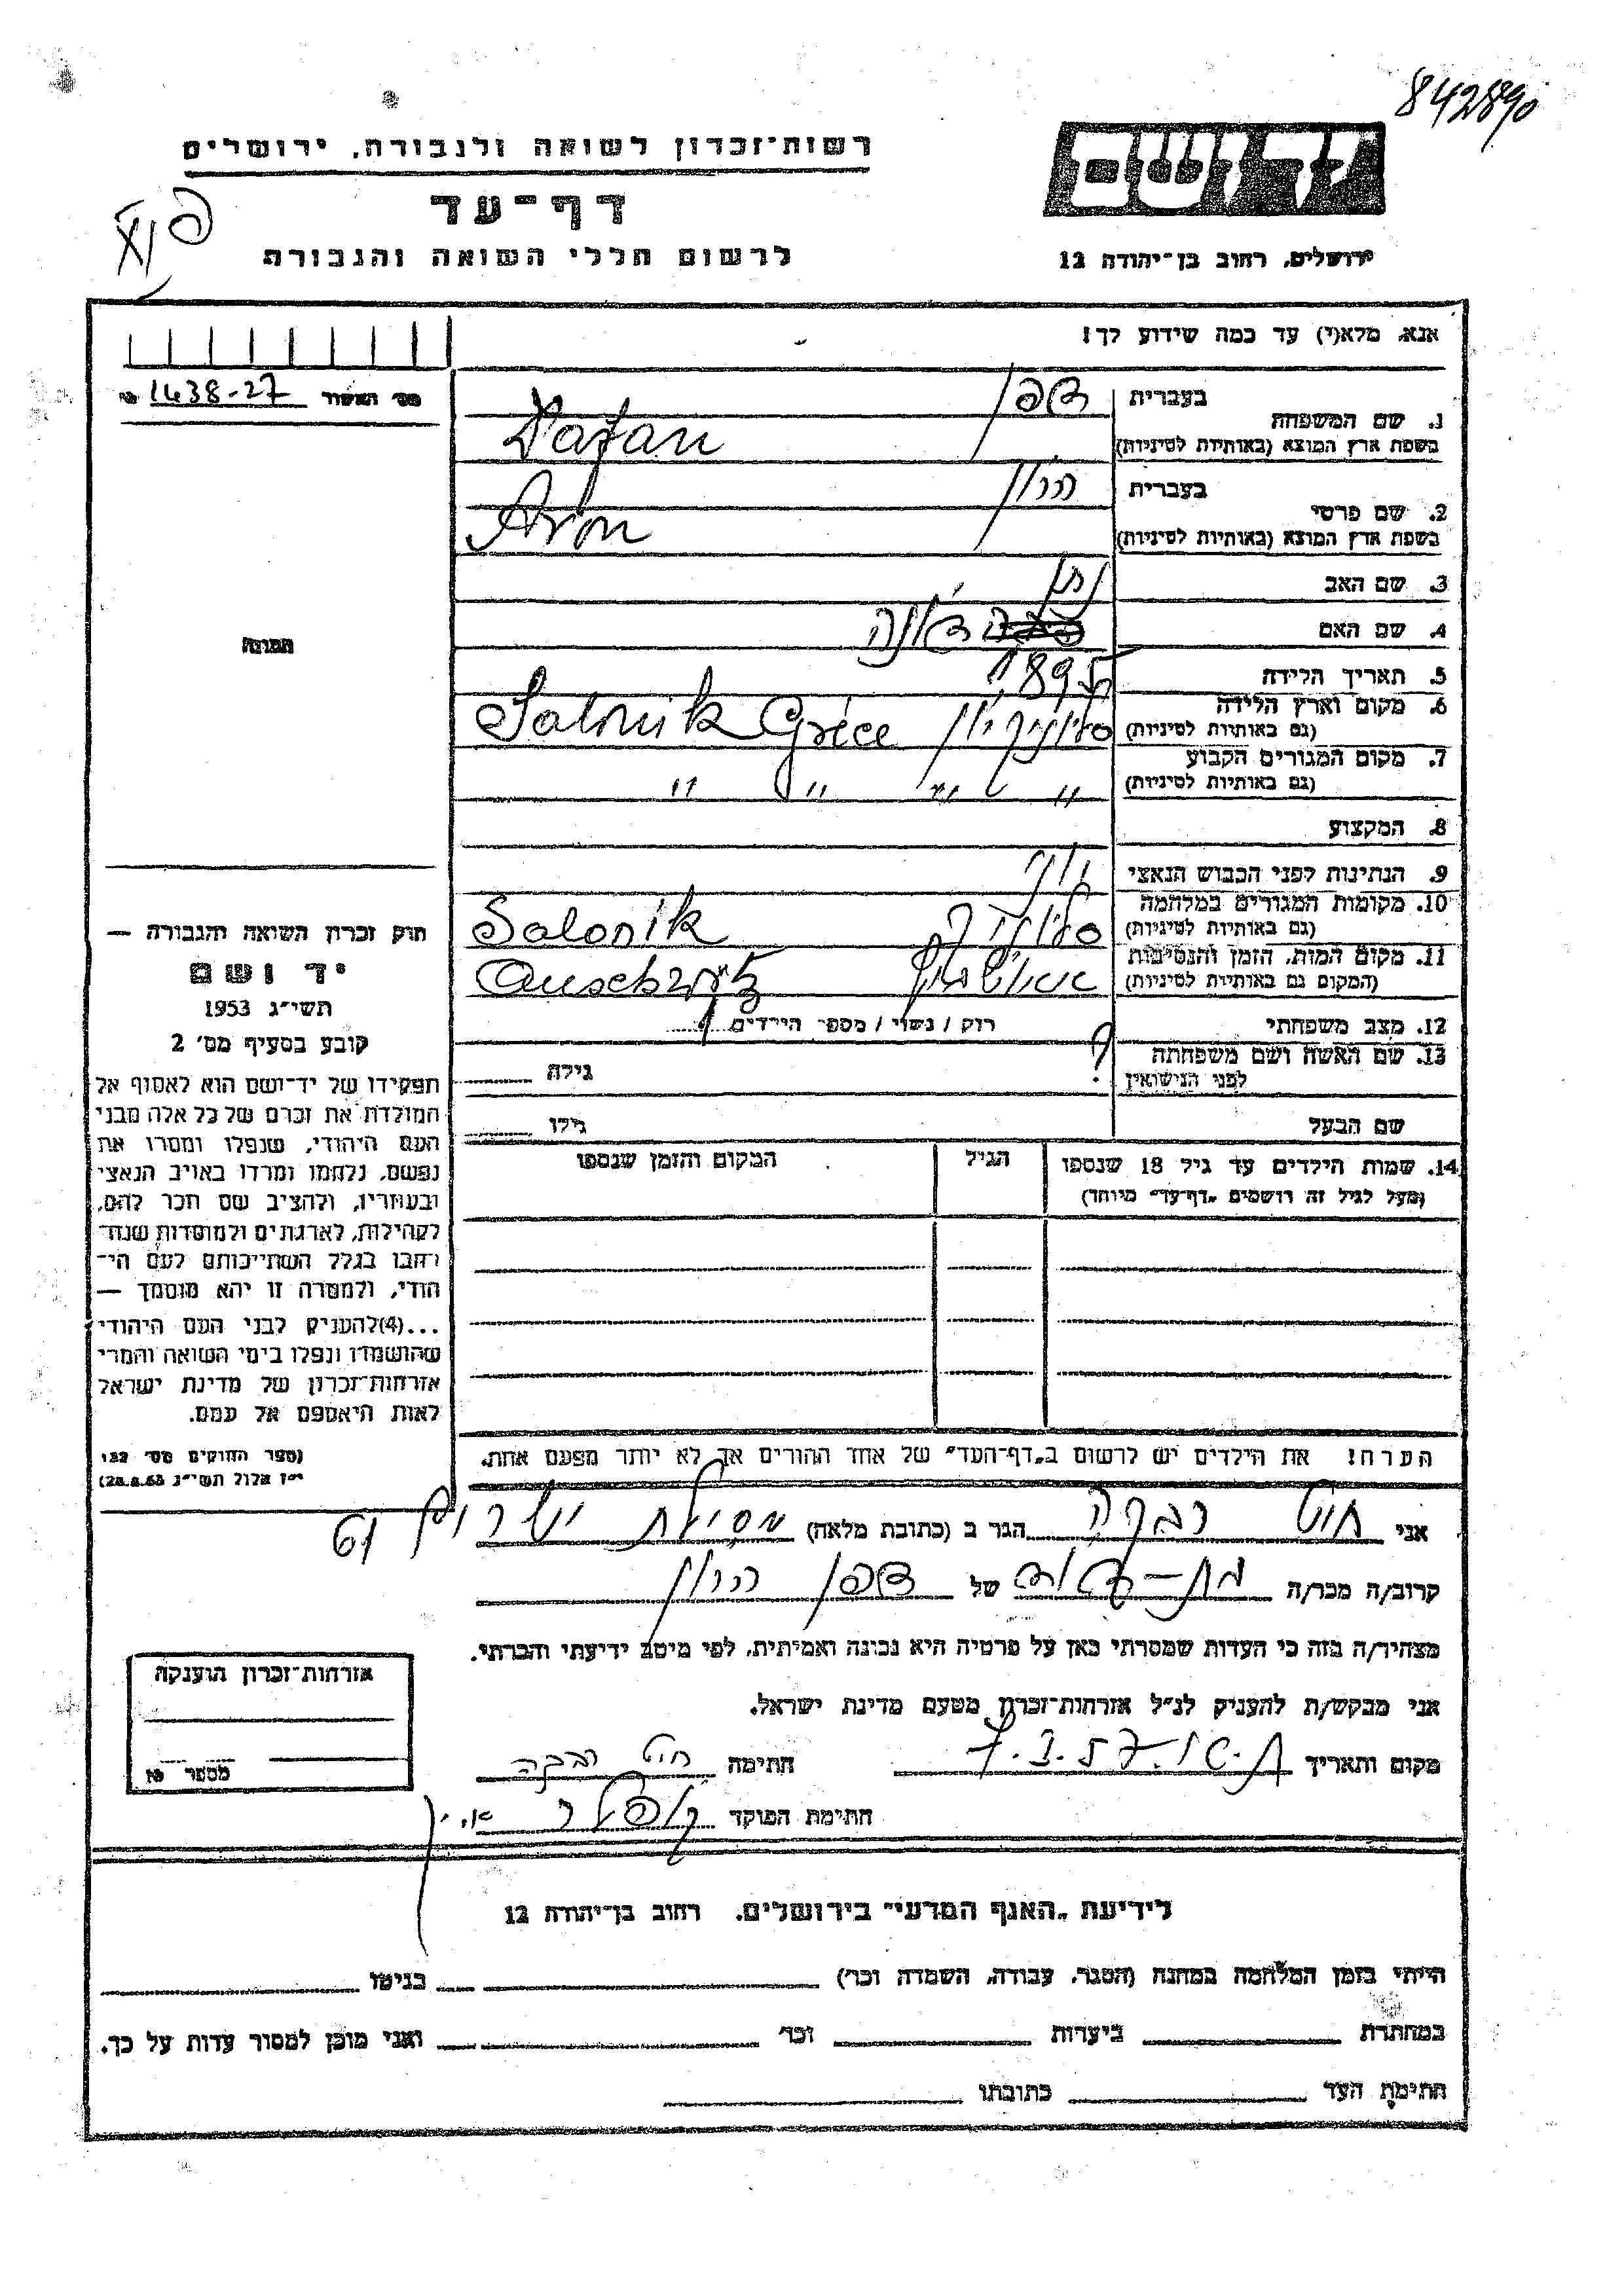 842890
רשות-זכרון לשואה ולגבורה, ירושלים
יד ושם
דף-עד
לרשום חללי השואה והגבורה
ירושלים, רחוב בן-יהודה 12
אנא, מלא(י) עד כמה שידוע לך!
מס' האשור 1438-27
1. שם המשפחה
בעברית
בשפת ארץ המוצא (באותיות לטיניות) Dafan
2. שם פרטי
בעברית הרון
בשפת ארץ המוצא (באותיות לטיניות) Aron
3. שם האב נתן
4. שם האם
התמונה
5. תאריך הלידה 1895
6. מקום וארץ הלידה
(גם באותיות לטיניות) סלוניק יון Salonik Gréce
7. מקום המגורים הקבוע
(גם באותיות לטיניות) " " " "
8. המקצוע
9. הנתינות לפני הכבוש הנאצי יון
10. מקומות המגורים במלחמה
(גם באותיות לטיניות) סלוניק Salonik
11. מקום המות, הזמן והנסיבות
(המקום גם באותיות לטיניות) אושויץ
12. מצב משפחתי רוק / נשוי / מספר הילדים
13. שם האשה ושם משפחתה
לפני הנישואין ? גילה
שם הבעל גילו
14. שמות הילדים עד גיל 18 שנספו
(מעל לגיל זה רושמים "דף-עד" מיוחד)
הגיל
המקום והזמן שנספו
חוק זכרון השואה והגבורה —
יד ושם
תשי״ג 1953
קובע בסעיף מס' 2
תפקידו של יד-ושם הוא לאסוף אל
המולדת את זכרם של כל אלה מבני
העם היהודי, שנפלו ומסרו את
נפשם, נלחמו ומרדו באויב הנאצי
ובעוזריו, ולהציב שם וזכר להם,
לקהילות, לארגונים ולמוסדות שנח-
רבו בגלל השתייכותם לעם הי-
הודי, ולמטרה זו יהא מוסמך —
...(4)להעניק לבני העם היהודי
שהושמדו ונפלו בימי השואה והמרי
אזרחות-זכרון של מדינת ישראל
לאות היאספם אל עמם.
(ספר החוקים מס' 132,
י״ז אלול תשי״ג 28.8.53)
הערה! את הילדים יש לרשום ב"דף-העד" של אחד ההורים אך לא יותר מפעם אחת.
אני רבקה הגר ב (כתובת מלאה)
קרוב/ה מכר/ה בת-דוד של הרון
מצהיר/ה בזה כי העדות שמסרתי כאן על פרטיה היא נכונה ואמיתית, לפי מיטב ידיעתי והכרתי.
אני מבקש/ת להעניק לנ״ל אזרחות-זכרון מטעם מדינת ישראל.
אזרחות-זכרון הוענקה
מספר
מקום ותאריך חתימה רבקה
חתימת הפוקד
לידיעת "האגף המדעי" בירושלים, רחוב בן-יהודה 12
הייתי בזמן המלחמה במחנה (הסגר, עבודה, השמדה וכר') בגיטו
במחתרת ביערות וכר' ואני מוכן למסור עדות על כך.
חתימת העד כתובתו